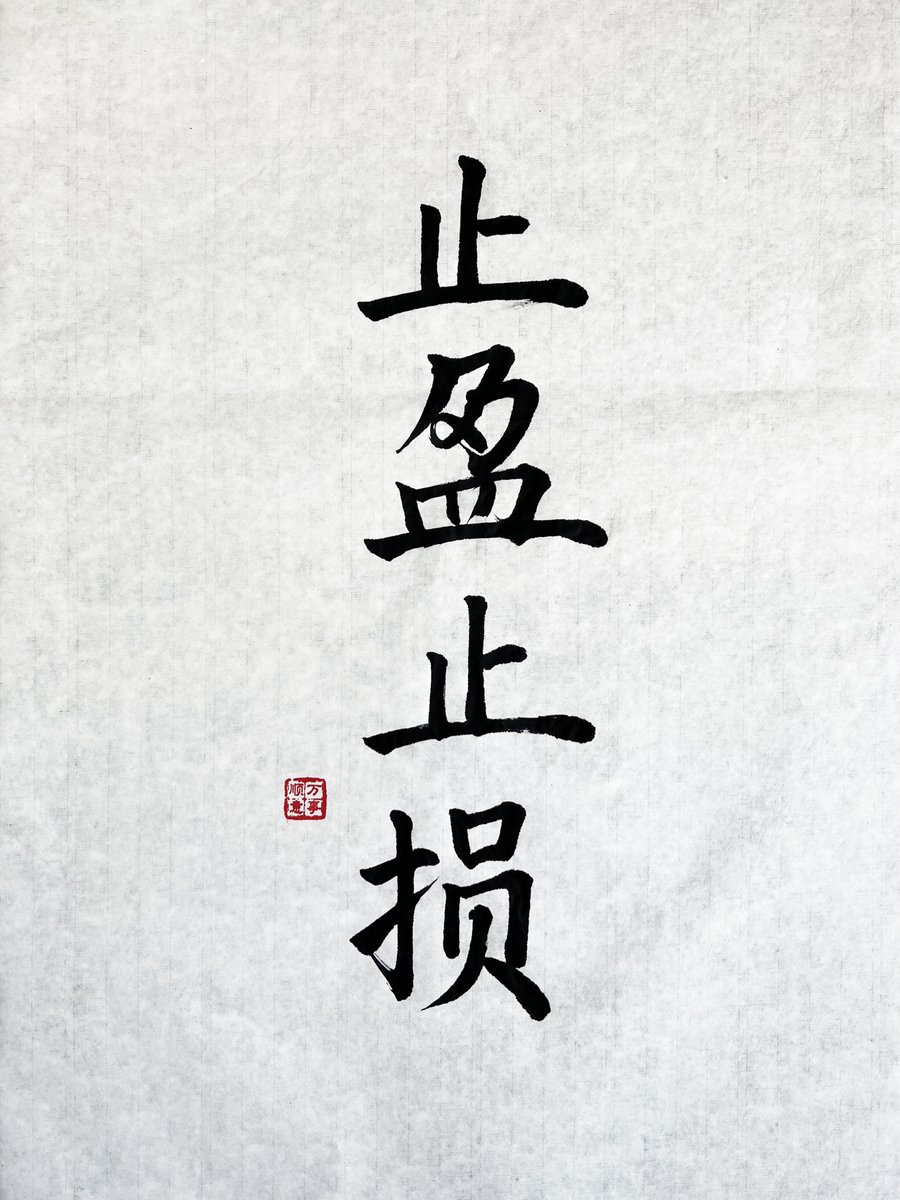 止盈止损
万事
顺意